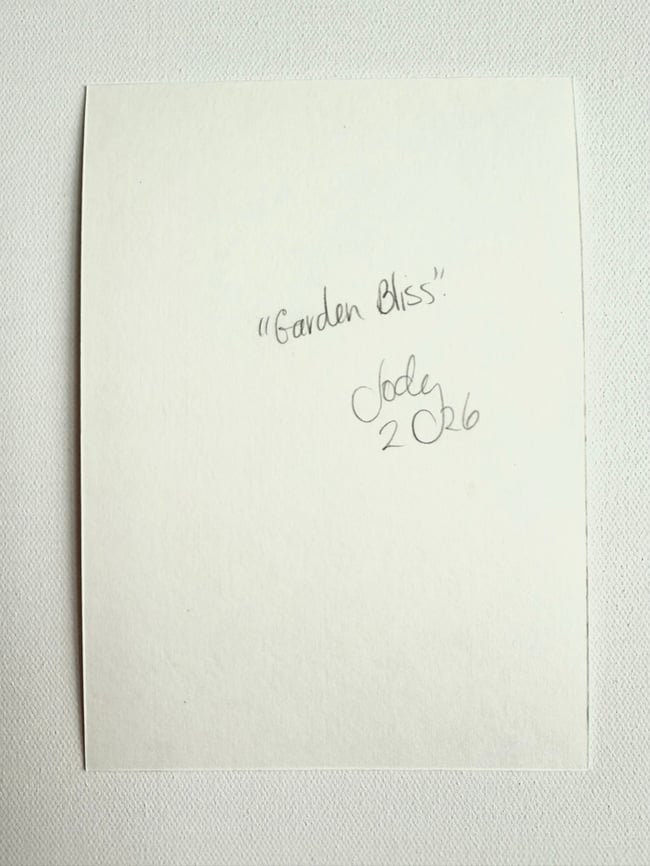 "Garden Bliss"
Jody
2026